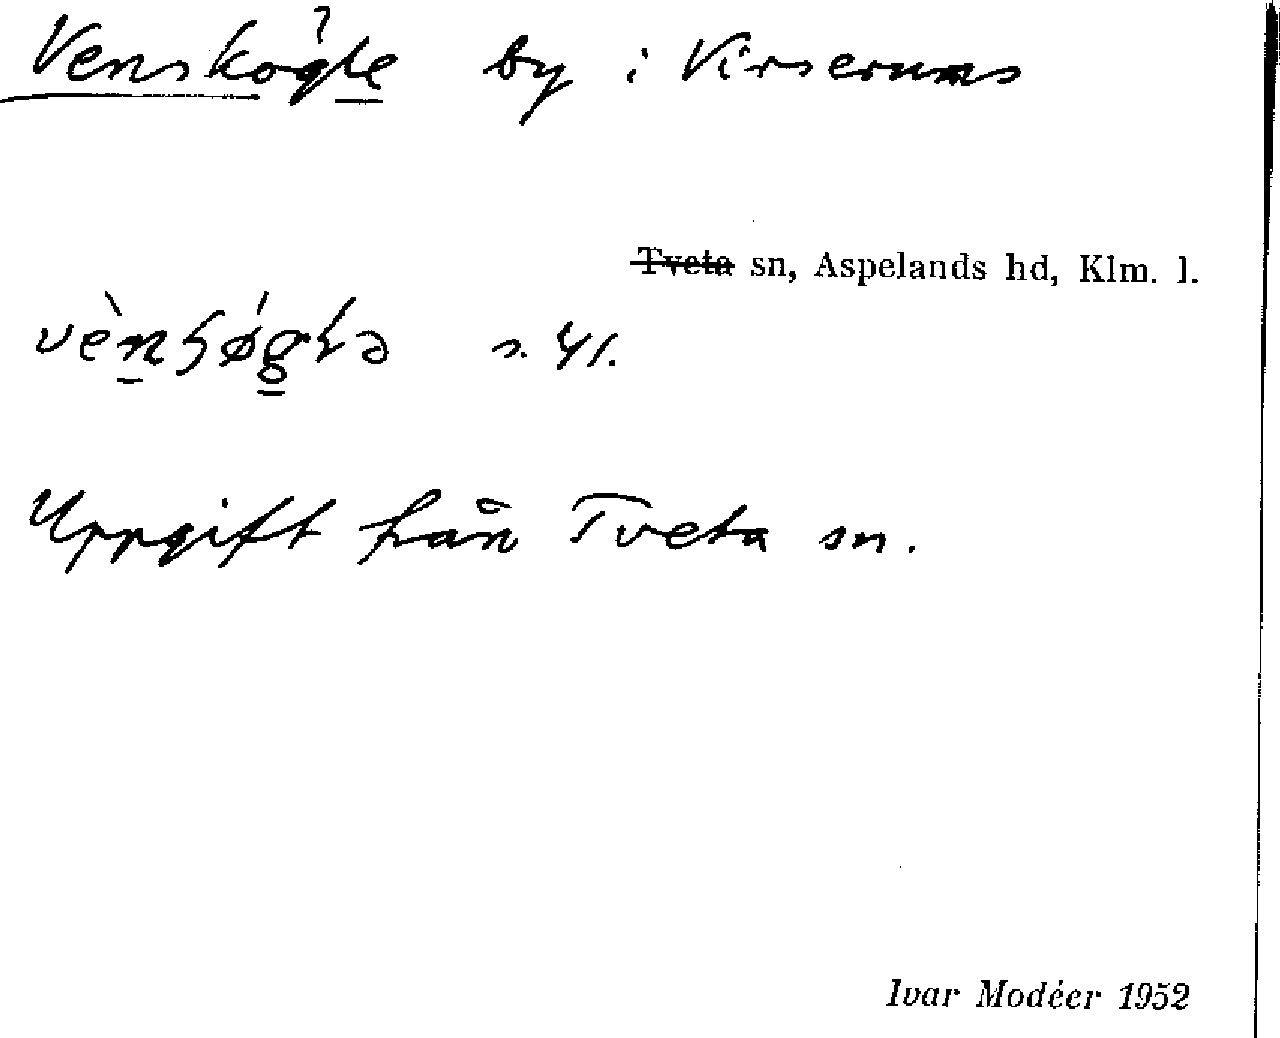 Venskögle by i Virserums
Tveta sn, Aspelands hd, Klm. l.
s. 41.
Uppgift från Tveta sn.
Ivar Modéer 1952